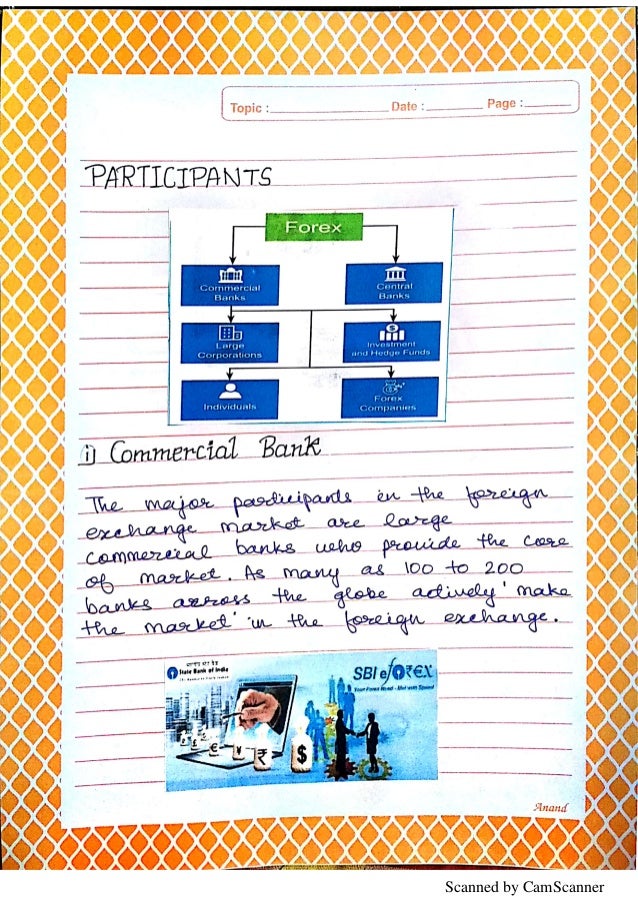 Topic : Date : Page :
PARTICIPANTS
Forex
Commercial Banks
Central Banks
Large Corporations
Investment and Hedge Funds
Individuals
Forex Companies
i) Commercial Bank
The major participants in the foreign
exchange market are large
commercial banks who provide the core
of market. As many as 100 to 200
banks across the globe actively 'make
the market' in the foreign exchange.
भारतीय स्टेट बैंक
State Bank of India
SBI eFOR€X
Your Forex Need - Met with Speed
£ £ € ¥ ₹ $
Anand
Scanned by CamScanner